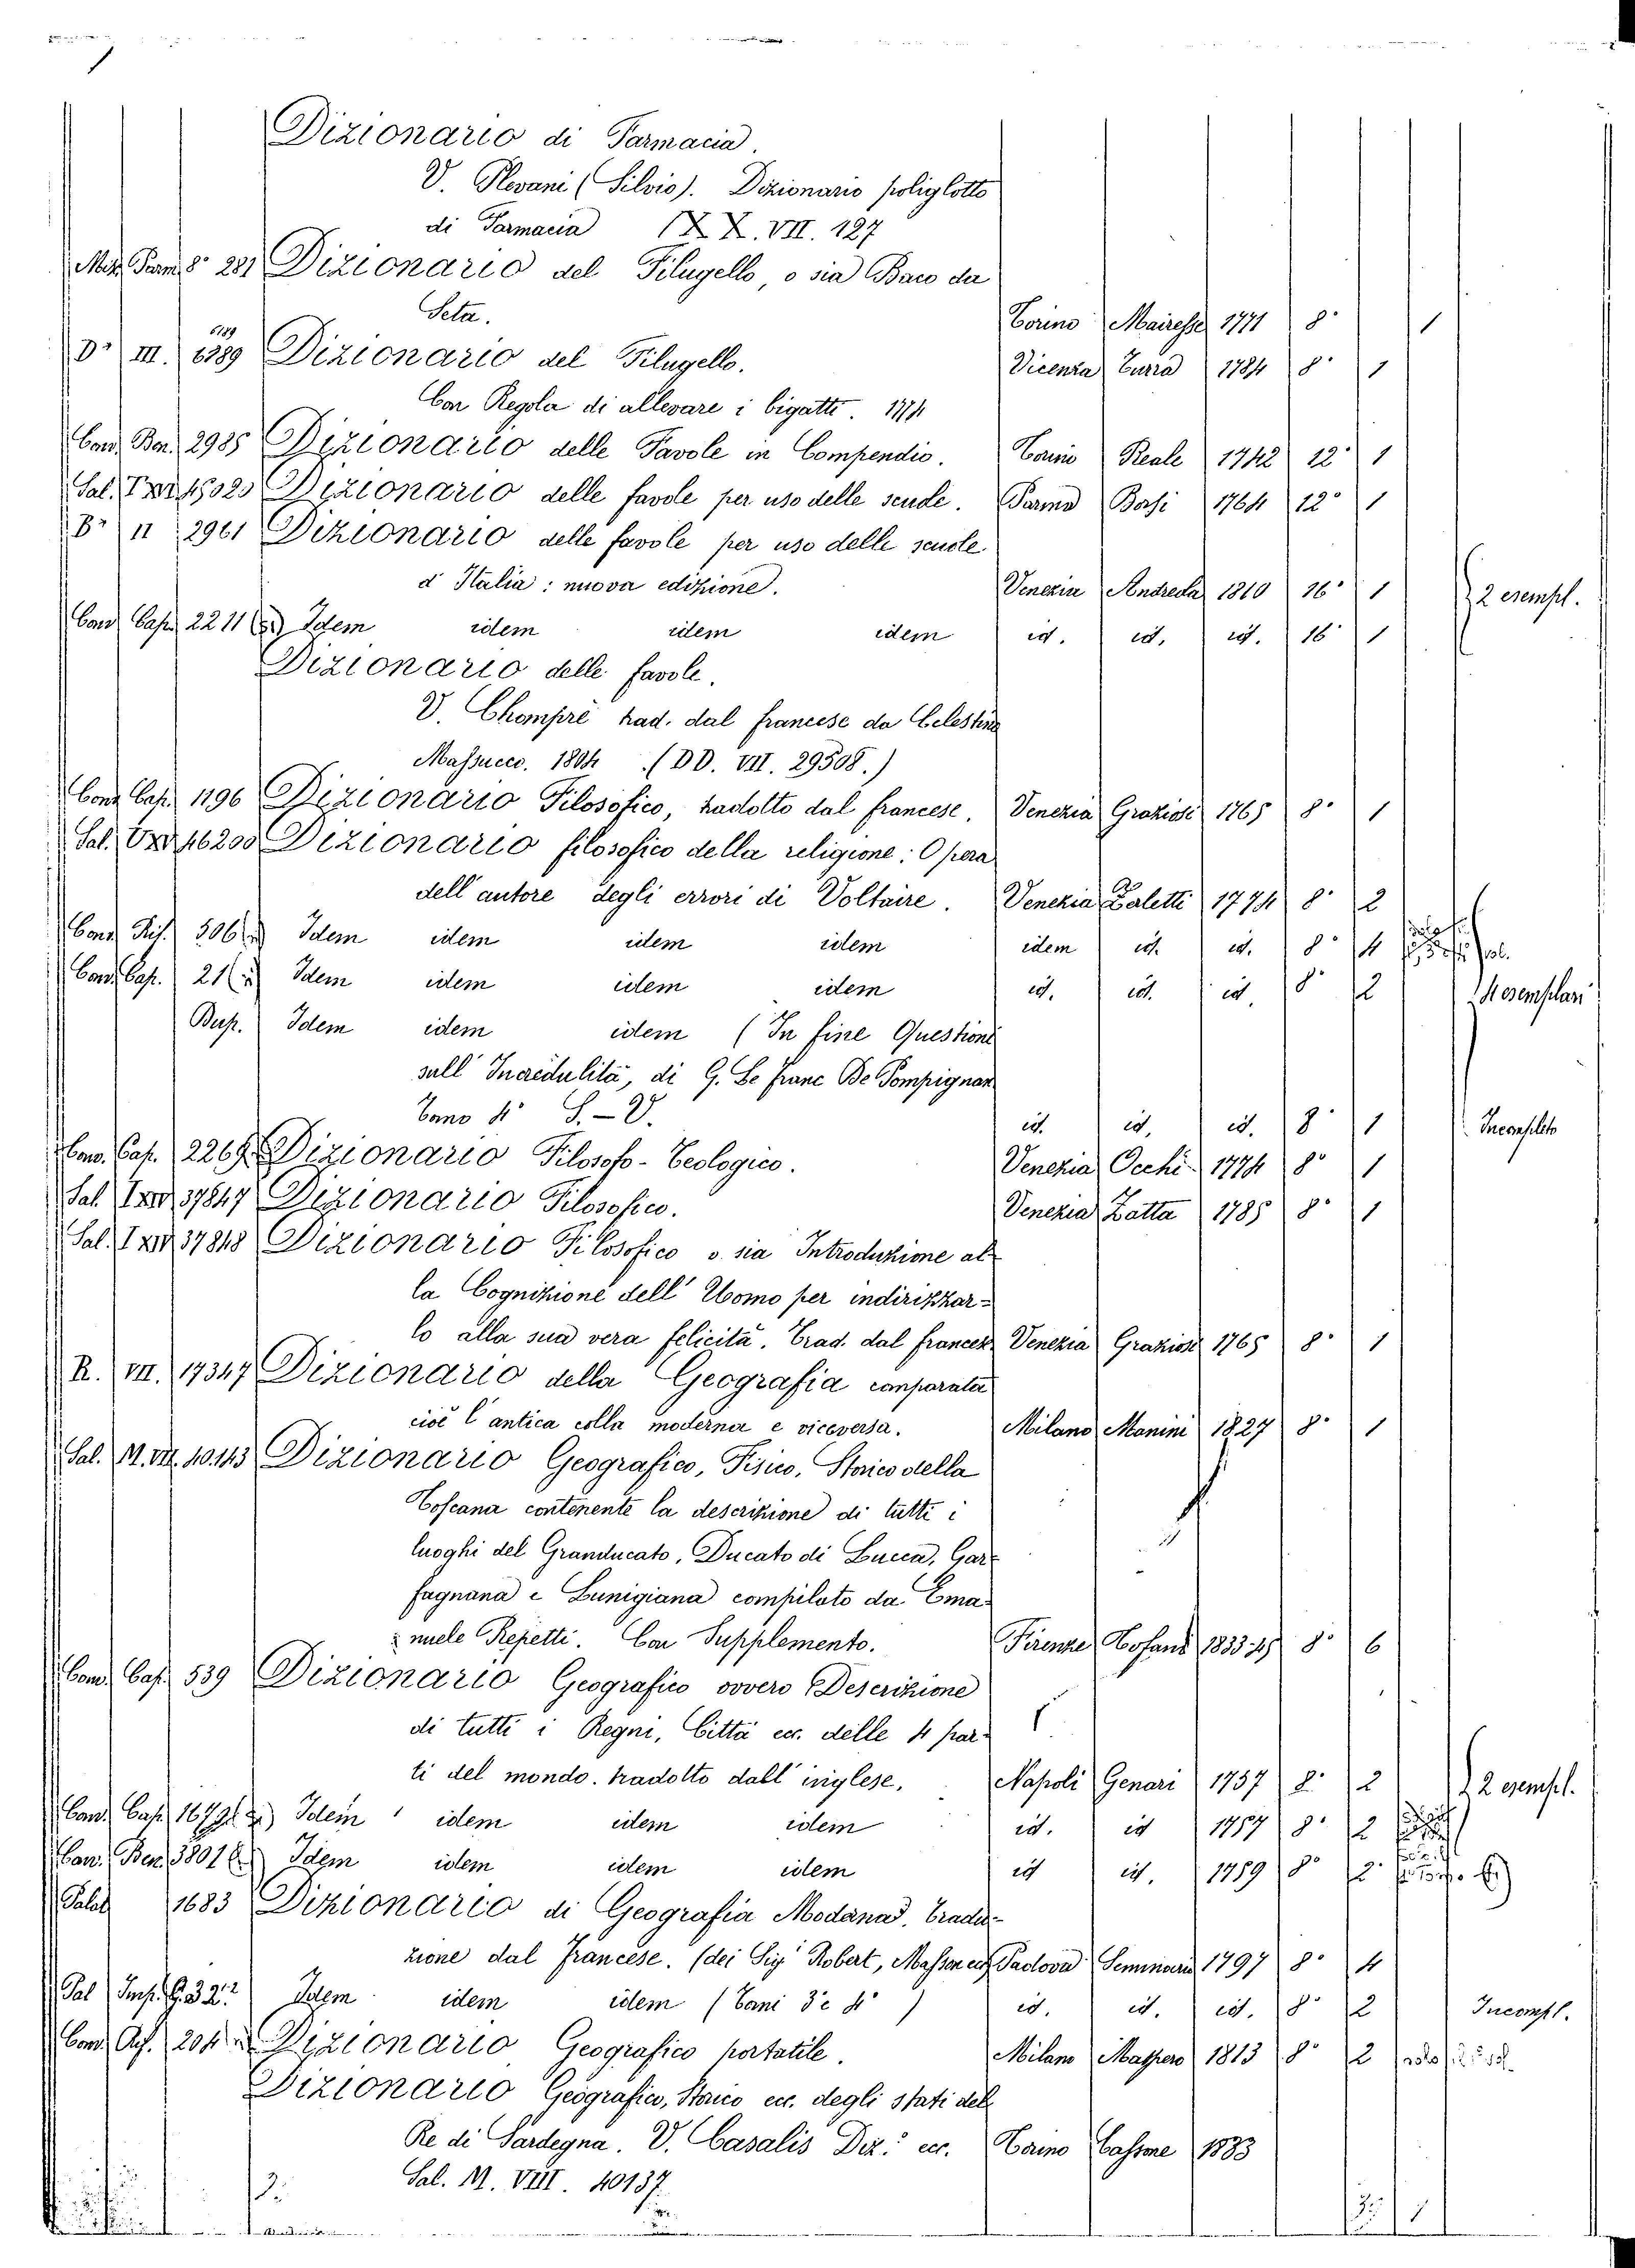 Dizionario di Farmacia.
V. Plevani (Silvio). Dizionario poliglotto
di Farmacia XX. VII. 127
Misc. Parm. 8° 281 Dizionario del Filugello, o sia Baco da
Seta. Torino Mairesse 1771 8° 1
6189
D° III. 6389 Dizionario del Filugello. Vicenza Turra 1784 8° 1
Con Regola di allevare i bigatti. 1774
Cond. Ben. 2985 Dizionario delle Favole in Compendio. Torino Reale 1742 12° 1
Sal. 15023 Dizionario delle favole per uso delle scuole. Parma Bosi 1764 12° 1
B° II 2961 Dizionario delle favole per uso delle scuole
d'Italia: nuova edizione. Venezia Andreola 1810 16° 1 2 esempl.
Cond. Cap. 2211 Idem idem idem idem id. id. id. 16° 1
Dizionario delle favole.
V. Chompré trad. dal francese da Celestino
Massucco. 1804 (DD. VII. 29508.)
Cond. Cap. 1196 Dizionario Filosofico, tradotto dal francese. Venezia Graziosi 1765 8° 1
Sal. 46200 Dizionario filosofico della religione: Opera
dell'autore degli errori di Voltaire. Venezia Zaletti 1774 8° 2
Cond. Rif. 306 Idem idem idem idem idem id. id. 8° 4
Cond. Cap. 21 Idem idem idem idem id. id. id. 8° 2 4 esemplari
Busp. Idem idem idem (In fine Questione
sull'Incredulità, di G. Le Franc De Pompignan
Tomo 4° S.-V. id. id. id. 8° 1 Incompleto
Con. Cap. 2269 Dizionario Filosofo-Teologico. Venezia Occhi 1774 8° 1
Sal. 37847 Dizionario Filosofico. Venezia Zatta 1785 8° 1
Sal. 37848 Dizionario Filosofico o sia Introduzione al-
la Cognizione dell'Uomo per indirizzar-
lo alla sua vera felicità. Trad. dal francese Venezia Graziosi 1765 8° 1
R. VII. 17347 Dizionario della Geografia comparata
cioè l'antica colla moderna e viceversa. Milano Manini 1827 8° 1
Sal. M. VII. 40.143 Dizionario Geografico, Fisico, Storico della
Toscana contenente la descrizione di tutti i
luoghi del Granducato, Ducato di Lucca, Gar-
fagnana e Lunigiana compilato da Ema-
nuele Repetti. Con Supplemento. Firenze Tofani 1833-45 8° 6
Cond. Cap. 539 Dizionario Geografico ovvero Descrizione
di tutti i Regni, Città ec. delle 4 par-
ti del mondo. tradotto dall'inglese. Napoli Genari 1757 8° 2 2 esempl.
Cond. Cap. 1679 Idem idem idem idem id. id 1757 8° 2
Con. Ben. 3801 Idem idem idem idem id id. 1759 8° 2
Palat 1683 Dizionario di Geografia Moderna. Tradu-
zione dal Francese. (dei Sig.ri Robert, Masson ec.) Padova Seminario 1797 8° 4
Pal Imp. G. 32 Idem idem idem (Tomi 3° e 4°) id. id. id. 8° 2 Incompl.
Cond. 204 Dizionario Geografico portatile. Milano Maspero 1813 8° 2
Dizionario Geografico, Storico ecc. degli Stati del
Re di Sardegna. V. Casalis Diz.° ecc. Torino Cassone 1833
Sal. M. VIII. 40137.